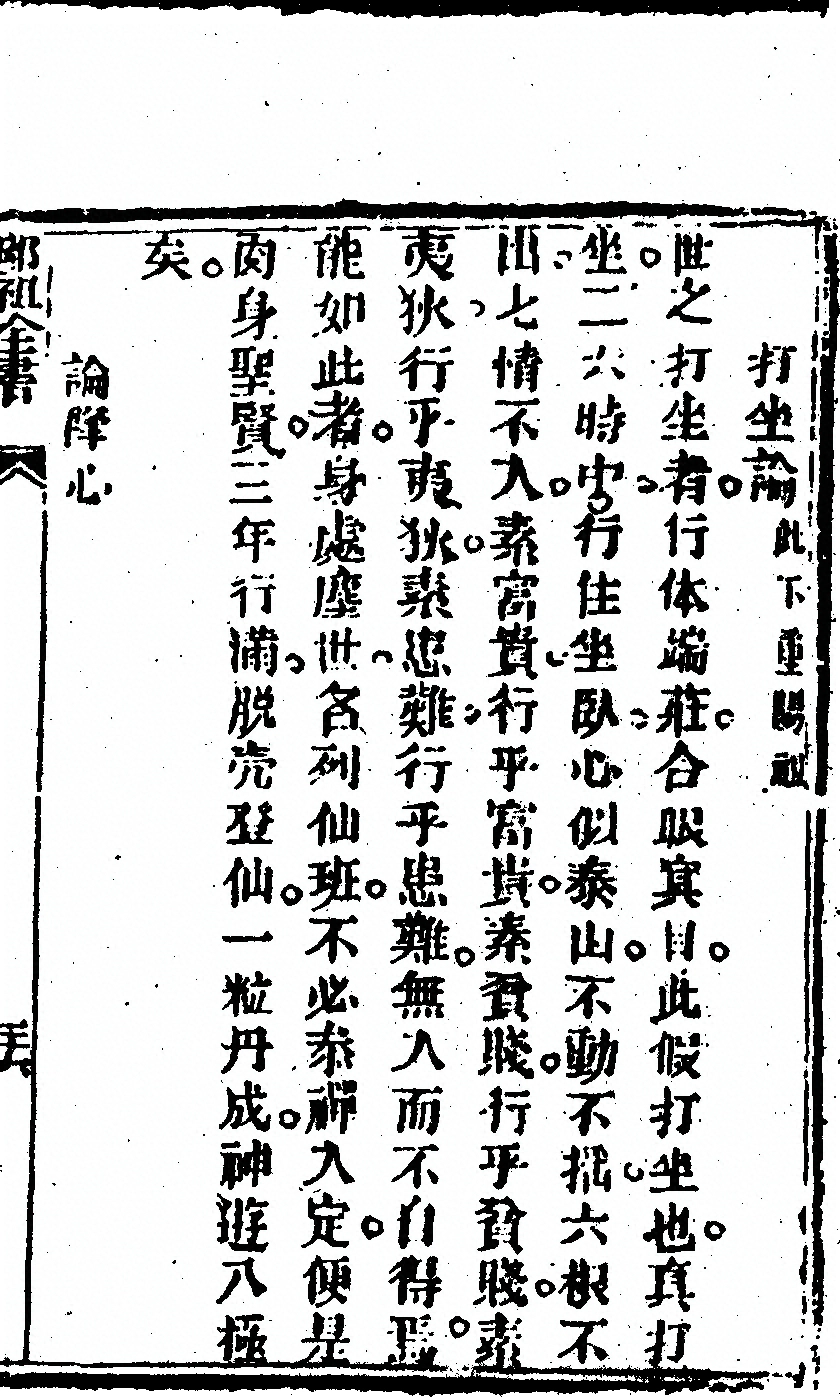 打坐論此下重陽祖
世之打坐者行体端莊合眼寘目此假打坐也真打
坐二六時中行住坐臥心似泰山不動不搖六根不
出七情不入素富貴行乎富貴素貧賤行乎貧賤素
夷狄行乎夷狄素患難行乎患難無入而不自得焉
能如此者身處塵世名列仙班不必叅禪入定便是
肉身聖賢三年行滿脱壳登仙一粒丹成神遊八極
矣
論降心
邱祖全書